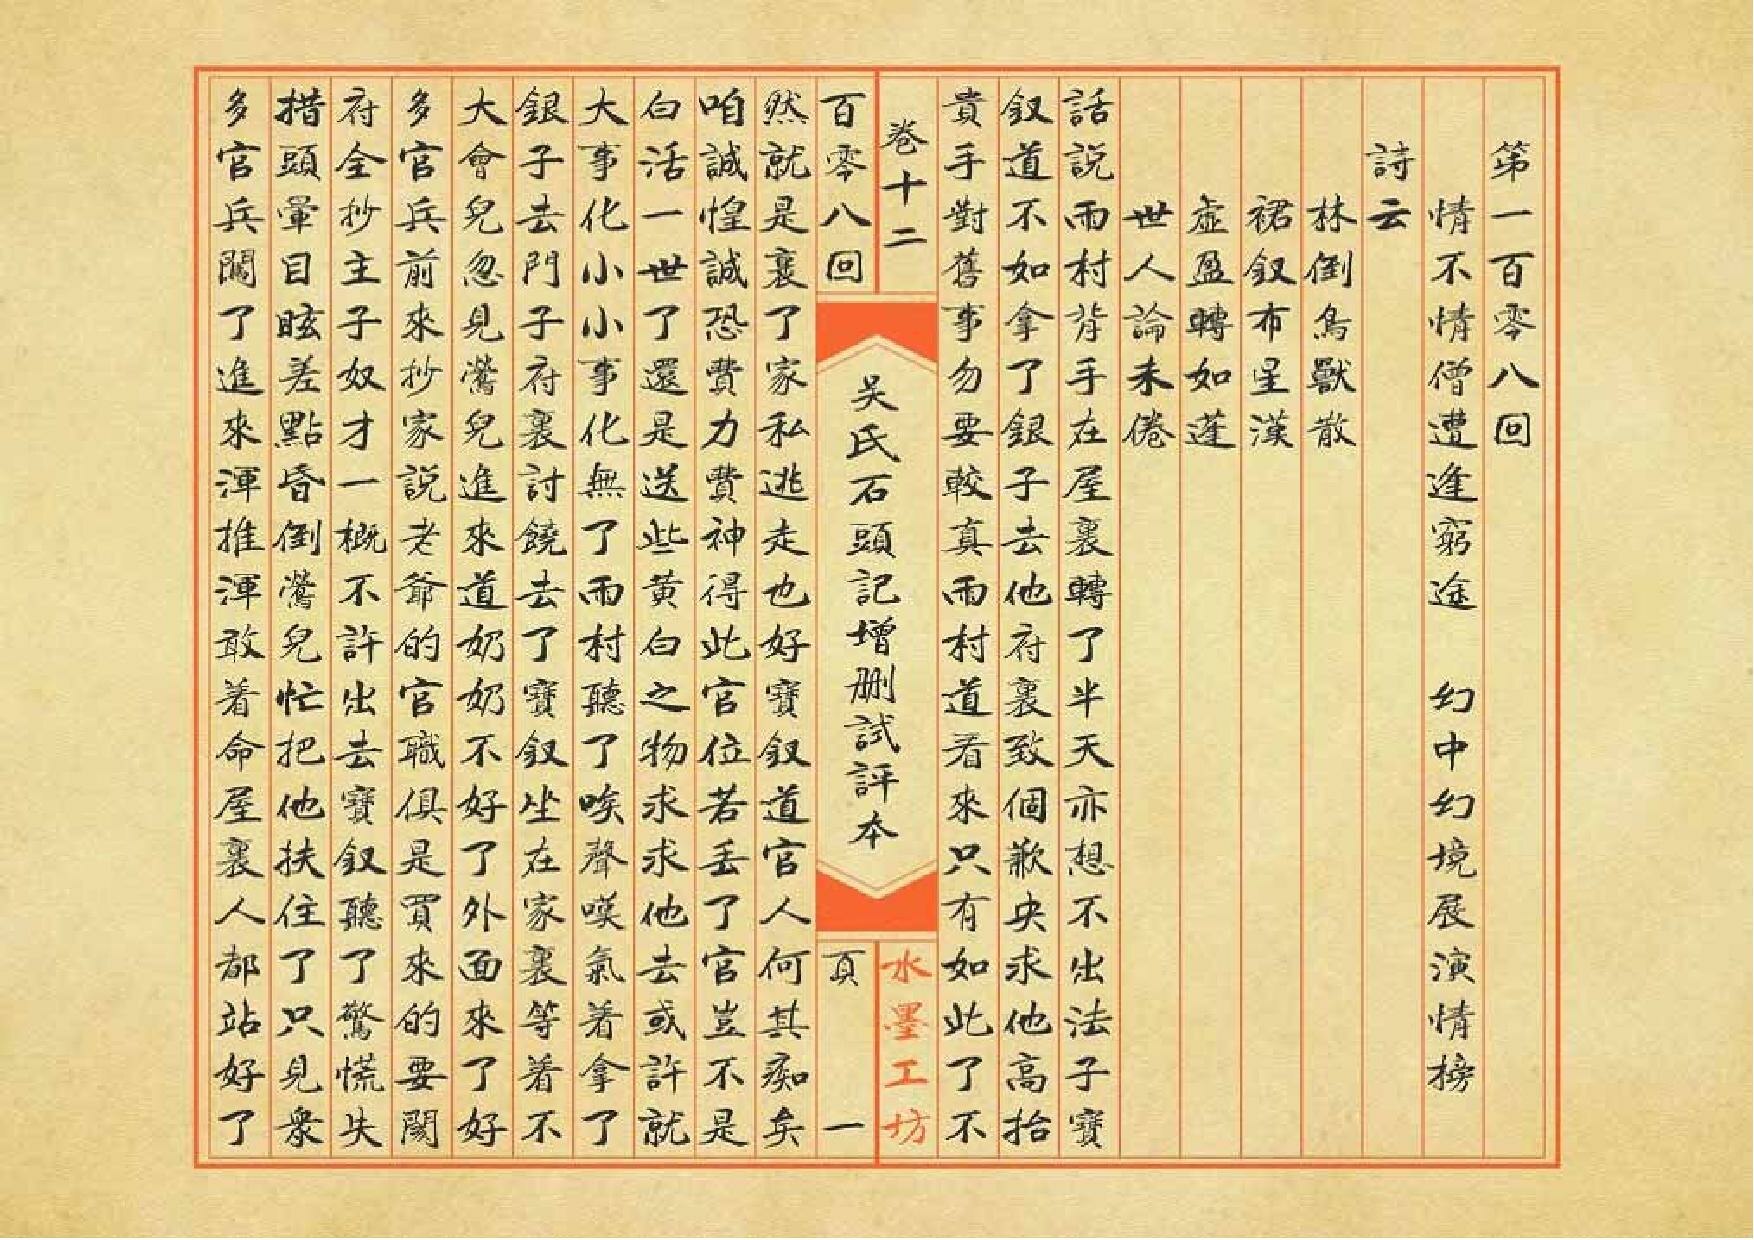 第一百零八回
情不情僧遭逢窮途　幻中幻境展演情榜
詩云
林倒鳥獸散
裙釵布星漢
虛盈轉如蓬
世人論未倦
話說雨村背手在屋裏轉了半天亦想不出法子寶
釵道不如拿了銀子去他府裏致個歉央求他高抬
貴手對舊事勿要較真雨村道看來只有如此了不
卷十二
水墨工坊
吴氏石頭記增刪試評本
百零八回
頁一
然就是裹了家私逃走也好寶釵道官人何其痴矣
咱誠惶誠恐費力費神得此官位若丢了官豈不是
白活一世了還是送些黃白之物求求他去或許就
大事化小小事化無了雨村聽了唉聲嘆氣着拿了
銀子去門子府裏討饒去了寶釵坐在家裏等着不
大會兒忽見鶯兒進來道奶奶不好了外面來了好
多官兵前來抄家說老爺的官職俱是買來的要闔
府全抄主子奴才一概不許出去寶釵聽了驚慌失
措頭暈目眩差點昏倒鶯兒忙把他扶住了只見衆
多官兵闖了進來渾推渾敢着命屋裏人都站好了